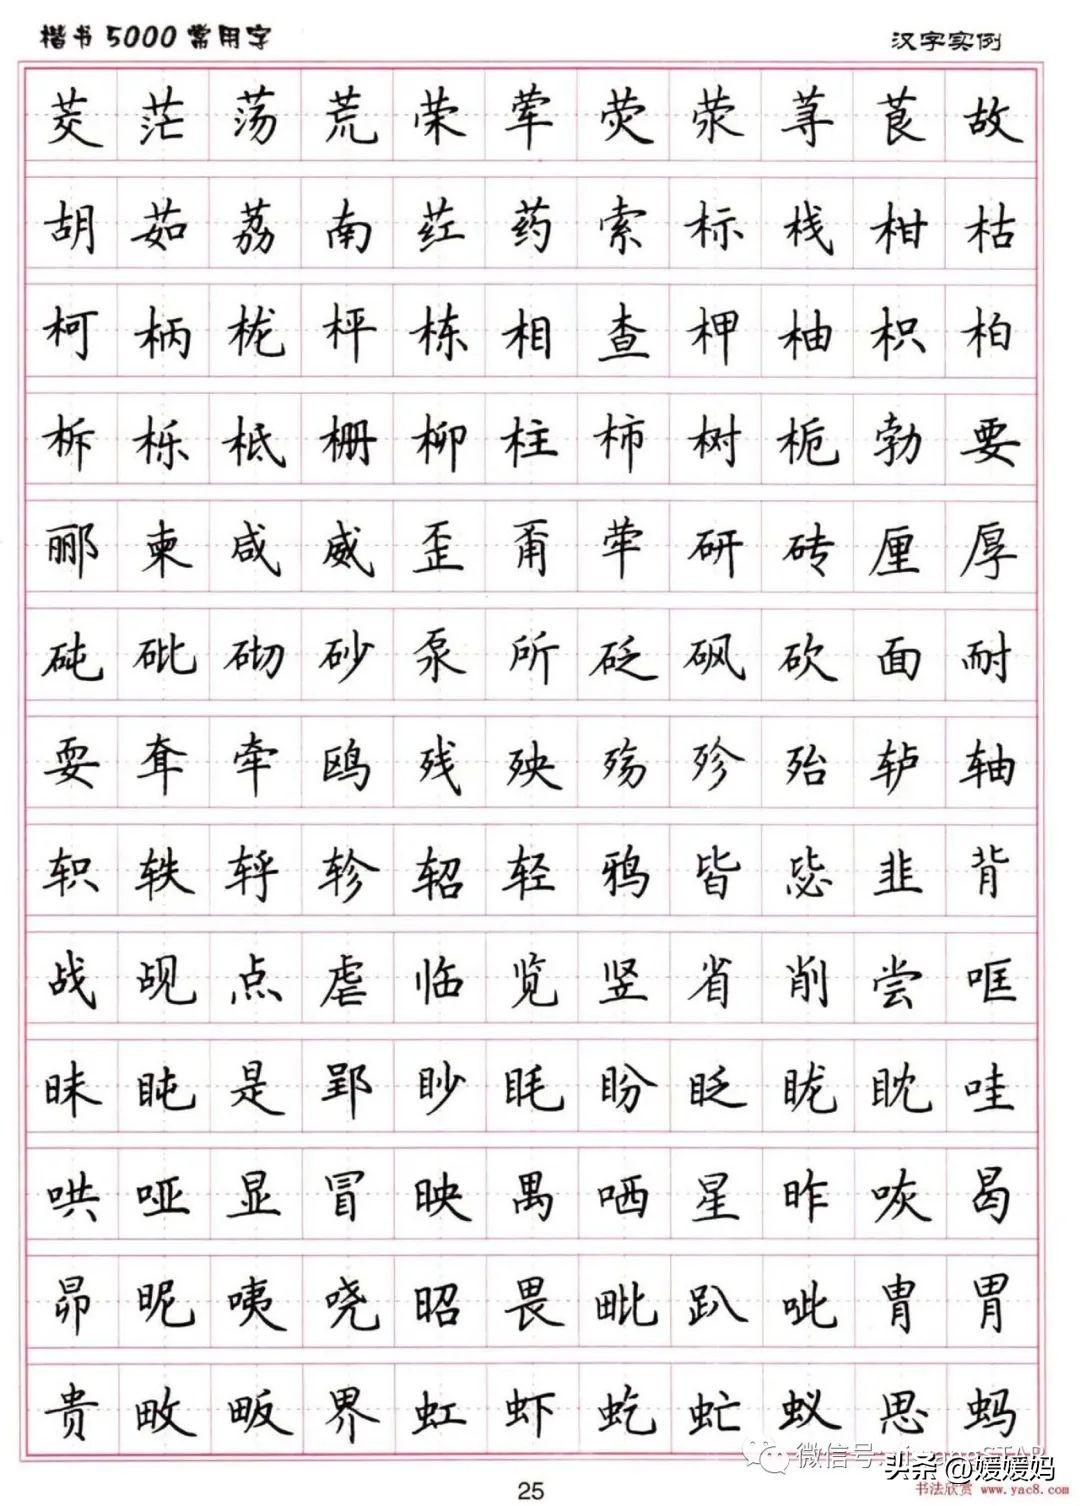 楷书5000常用字 汉字实例
茭 茫 荡 荒 荣 荤 荧 荥 荨 茛 故
胡 茹 荔 南 荭 药 索 标 栈 柑 枯
柯 柄 栊 枰 栋 相 查 柙 柚 枳 柏
柝 栎 柢 栅 柳 柱 柿 树 栀 勃 要
郦 柬 咸 威 歪 甭 荦 研 砖 厘 厚
砘 砒 砌 砂 泵 所 砭 砜 砍 面 耐
耍 耷 牵 鸥 残 殃 殇 殄 殆 轳 轴
轵 轶 轷 轸 轺 轻 鸦 皆 毖 韭 背
战 觇 点 虐 临 览 竖 省 削 尝 哐
昧 盹 是 郢 眇 眊 盼 眨 昽 眈 哇
哄 哑 显 冒 映 禺 哂 星 昨 咴 曷
昴 昵 咦 哓 昭 畏 毗 趴 呲 胄 胃
贵 畋 畈 界 虹 虾 虼 虻 蚁 思 蚂
微信号
头条@媛媛妈
25
书法欣赏 www.yac8.com